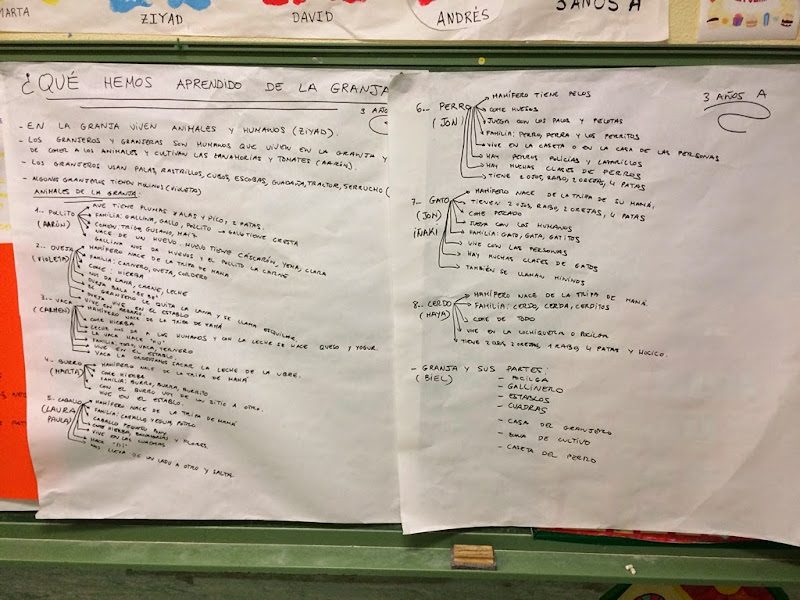 MARTA
ZIYAD
DAVID
ANDRÉS
3 AÑOS A
¿QUÉ HEMOS APRENDIDO DE LA GRANJA
3 AÑOS
- EN LA GRANJA VIVEN ANIMALES Y HUMANOS (ZIYAD).
- LOS GRANJEROS Y GRANJERAS SON HUMANOS QUE VIVEN EN LA GRANJA Y
DE COMER A LOS ANIMALES Y CULTIVAN LAS ZANAHORIAS Y TOMATES (AARÓN).
- LOS GRANJEROS USAN PALAS, RASTRILLOS, CUBOS, ESCOBAS, GUADAÑA, TRACTOR, SERRUCHO (
- ALGUNOS GRANJEROS TIENEN MOLINOS (VIOLETA)
ANIMALES DE LA GRANJA:
1.- POLLITO
(AARÓN)
AVE TIENE PLUMAS Y ALAS Y PICO, 2 PATAS.
FAMILIA: GALLINA, GALLO, POLLITO → GALLO TIENE CRESTA
COMEN TRIGO, GUSANO, MAÍZ
NACE DE UN HUEVO. HUEVO TIENE CÁSCARÓN, YEMA, CLARA
GALLINA NOS DA HUEVOS Y EL POLLITO LA CARNE
2.- OVEJA
(VIOLETA)
MAMÍFERO NACE DE LA TRIPA DE MAMÁ
FAMILIA: CARNERO, OVEJA, CORDERO
COME: HIERBA
NOS DA LANA, CARNE, LECHE
OVEJA BALA "BE BE"
EL GRANJERO LE QUITA LA LANA Y SE LLAMA ESQUILAR
OVEJA VIVE EN EL ESTABLO
VIVE EN REBAÑO
3.- VACA
(CARMEN)
MAMÍFERO NACE DE LA TRIPA DE MAMÁ
COME HIERBA
LECHE NOS DA A LOS HUMANOS Y CON LA LECHE SE HACE QUESO Y YOGUR.
LA VACA HACE "MU"
FAMILIA: TORO, VACA, TERNERO
VIVE EN EL ESTABLO.
VACA LA ORDEÑAMOS SACAR LA LECHE DE LA UBRE.
4.- BURRO
(MARTA)
MAMÍFERO NACE DE LA TRIPA DE MAMÁ
COME HIERBA
FAMILIA: BURRO, BURRA, BURRITO
CON EL BURRO VOY DE UN SITIO A OTRO.
VIVE EN EL ESTABLO.
5. CABALLO
(LAURA
PAULA)
MAMÍFERO NACE DE LA TRIPA DE MAMÁ
FAMILIA: CABALLO YEGUA POTRO
CABALLO PEQUEÑO PONY
COME HIERBA, ZANAHORIAS Y FLORES.
VIVE EN LAS CUADRAS
HACE
NOS LLEVA DE UN LADO A OTRO Y SALTA.
6.- PERRO
(JON)
MAMÍFERO TIENE PELOS
COME HUESOS
JUEGA CON LOS PALOS Y PELOTAS
FAMILIA: PERRO, PERRA Y LOS PERRITOS
VIVE EN LA CASETA O EN LA CASA DE LAS PERSONAS
HAY PERROS POLICÍAS Y LAZARILLOS
HAY MUCHAS CLASES DE PERROS
TIENE 2 OJOS, RABO, 2 OREJAS, 4 PATAS
3 AÑOS A
7.- GATO
(JON)
IÑAKI
MAMÍFERO NACE DE LA TRIPA DE SU MAMÁ,
TIENEN 2 OJOS, RABO, 2 OREJAS, 4 PATAS
COME PESCADO
JUEGA CON LOS HUMANOS
FAMILIA: GATO, GATA, GATITOS
VIVE CON LAS PERSONAS
HAY MUCHAS CLASES DE GATOS
TAMBIÉN SE LLAMAN MININOS
8.- CERDO
(HAYA)
MAMÍFERO NACE DE LA TRIPA DE MAMÁ.
FAMILIA: CERDO, CERDA, CERDITOS
COME DE TODO
VIVE EN LA COCHIQUERA O POCILGA
TIENE 2 OJOS, 2 OREJAS, 1 RABO, 4 PATAS Y HOCICO.
- GRANJA Y SUS PARTES:
(BIEL)
- POCILGA
- GALLINERO
- ESTABLOS
- CUADRAS
- CASA DEL GRANJERO
- ZONA DE CULTIVO
- CASETA DEL PERRO